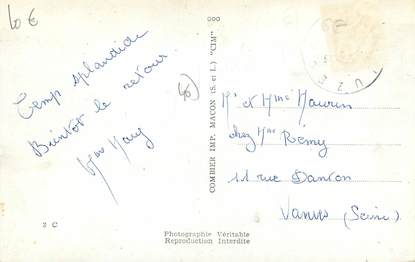 10 €
000
Temp splandide
Bientot le retour
40
COMBIER IMP. MACON (S. et L.) "CIM"
Mr et Mme Maurin
chez Mme Rémy
11 rue Danton
Vanves (Seine)
2 C
Photographie Véritable
Reproduction Interdite